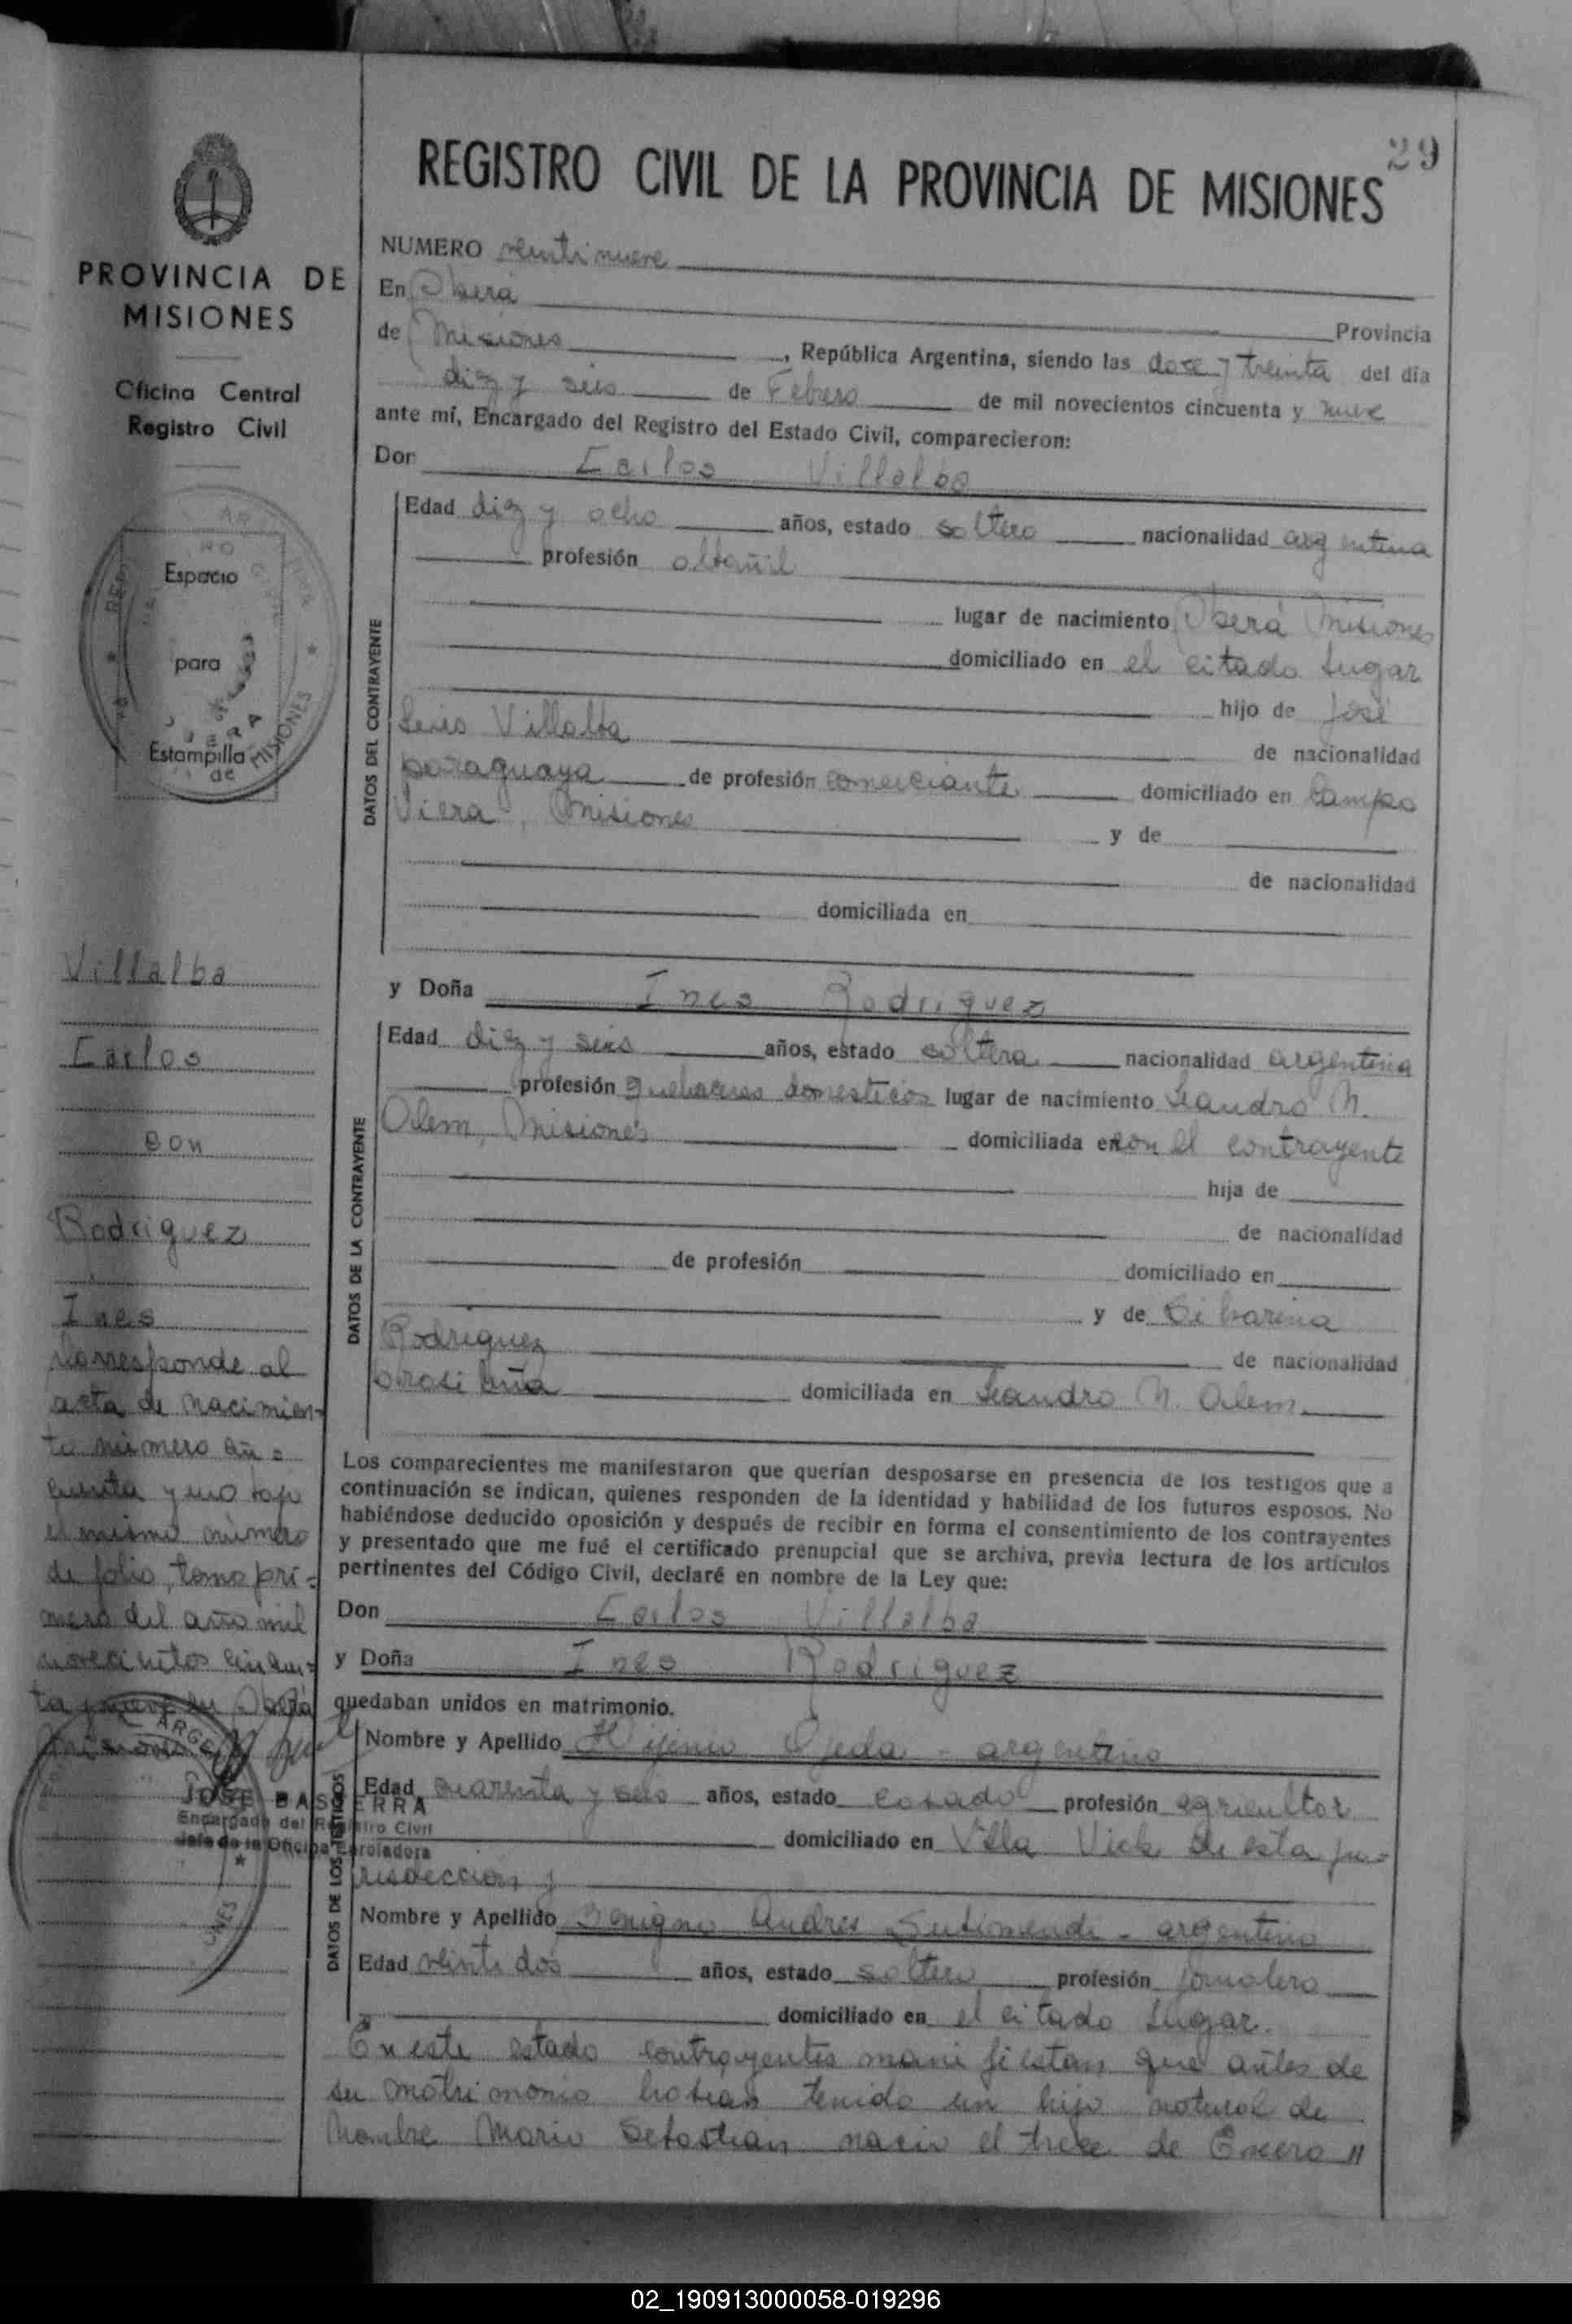 29
REGISTRO CIVIL DE LA PROVINCIA DE MISIONES
PROVINCIA DE
MISIONES
Oficina Central
Registro Civil
Espacio
para
Estampilla
de
MISIONES
Villalba
Carlos
con
Rodriguez
Ines
Corresponde al
acta de nacimien-
to número cin=
cuenta y uno bajo
el mismo número
de folio, tomo pri=
mero del año mil
novecientos cincuen=
ta y nueve en Oberá
Misiones
JOSE BASTERRA
Encargado del Registro Civil
Jefe de la Oficina Enroladora
NUMERO veintinueve
En Oberá
Provincia
de Misiones, República Argentina, siendo las doce y treinta del día
diez y seis de Febrero de mil novecientos cincuenta y nueve
ante mí, Encargado del Registro del Estado Civil, comparecieron:
Don Carlos Villalba
DATOS DEL CONTRAYENTE
Edad diez y ocho años, estado soltero nacionalidad argentina
profesión albañil
lugar de nacimiento Oberá Misiones
domiciliado en el citado lugar
hijo de José
Luis Villalba
de nacionalidad
paraguaya de profesión comerciante domiciliado en Campo
Viera, Misiones y de
de nacionalidad
domiciliada en
y Doña Ines Rodriguez
DATOS DE LA CONTRAYENTE
Edad diez y seis años, estado soltera nacionalidad argentina
profesión quehaceres domesticos lugar de nacimiento Leandro N.
Alem, Misiones domiciliada en con el contrayente
hija de
de nacionalidad
de profesión domiciliado en
y de
Rodriguez de nacionalidad
brasileña domiciliada en Leandro N. Alem.
Los comparecientes me manifestaron que querían desposarse en presencia de los testigos que a
continuación se indican, quienes responden de la identidad y habilidad de los futuros esposos. No
habiéndose deducido oposición y después de recibir en forma el consentimiento de los contrayentes
y presentado que me fué el certificado prenupcial que se archiva, previa lectura de los artículos
pertinentes del Código Civil, declaré en nombre de la Ley que:
Don Carlos Villalba
y Doña Ines Rodriguez
quedaban unidos en matrimonio.
DATOS DE LOS TESTIGOS
Nombre y Apellido Hijinio Ojeda - argentino
Edad cuarenta y seis años, estado casado profesión agricultor
domiciliado en Villa Vick de esta ju=
risdeccion y
Nombre y Apellido Benigno Andres - argentino
Edad veinti dos años, estado soltero profesión jornalero
domiciliado en el citado lugar.
En este estado contrayentes manifiestan que antes de
su matrimonio habian tenido un hijo natural de
nombre Mario Sebastian nacio el trece de Enero "
02_190913000058-019296